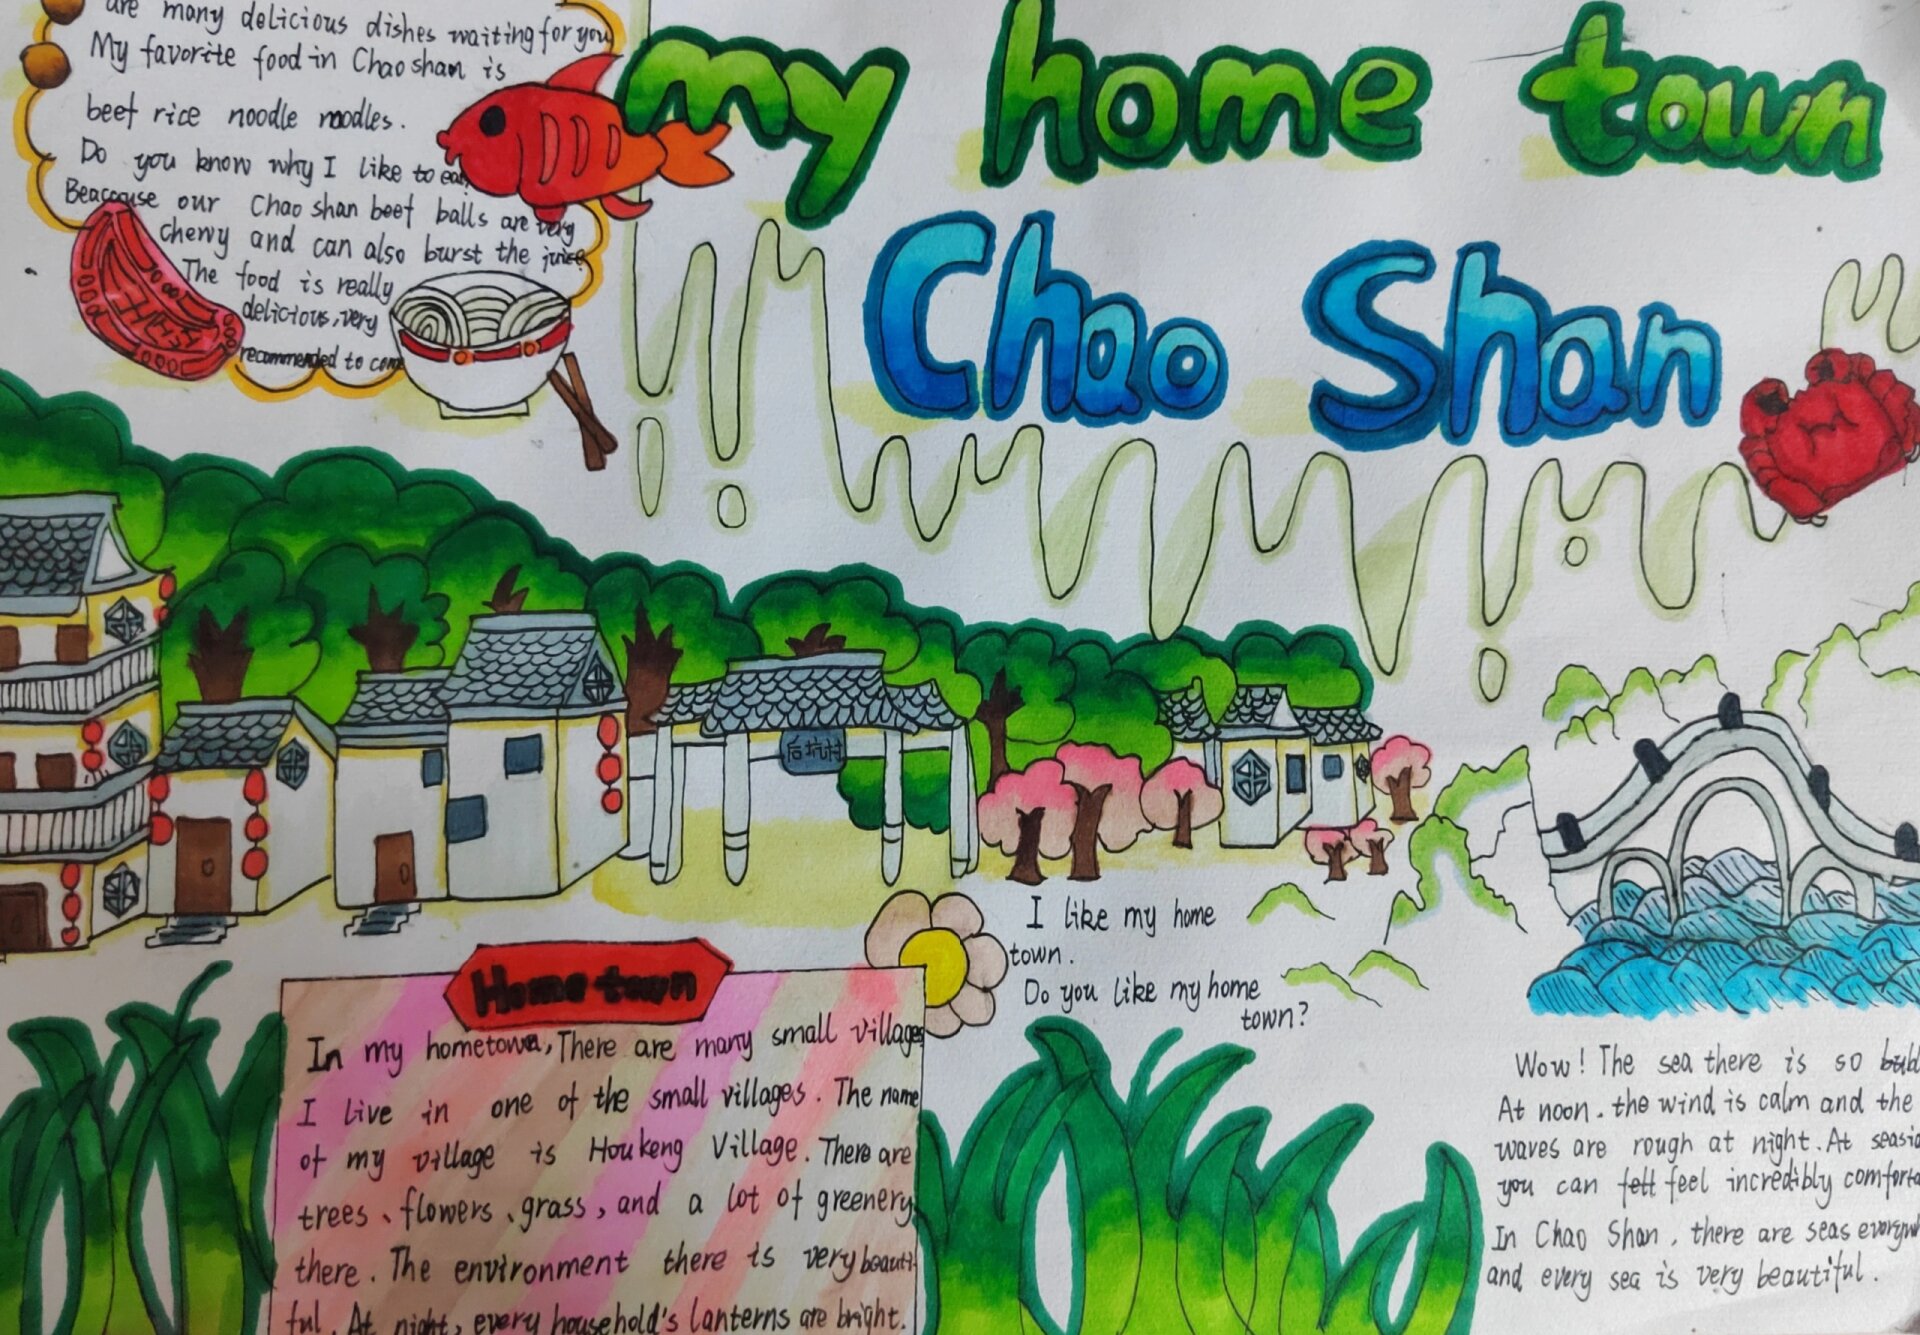 are many delicious dishes waiting for you
My favorite food in Chaoshan is
beef rice noodle noodles.
Do you know why I like to eat
Beacouse our Chao shan beef balls are very
chewy and can also burst the juice
The food is really
delicious, very
recommended to come
my home town
Chao Shan
后坑村
I like my home
town.
Do you like my home
town?
Home town
In my hometown, There are many small villages
I live in one of the small villages. The name
of my village is Houkeng Village. There are
trees、flowers、grass, and a lot of greenery
there. The environment there is very beauti-
ful. At night, every household's lanterns are bright.
Wow! The sea there is so
At noon. the wind is calm and the
waves are rough at night. At
you can feel incredibly
In Chao Shan, there are seas
and every sea is very beautiful.